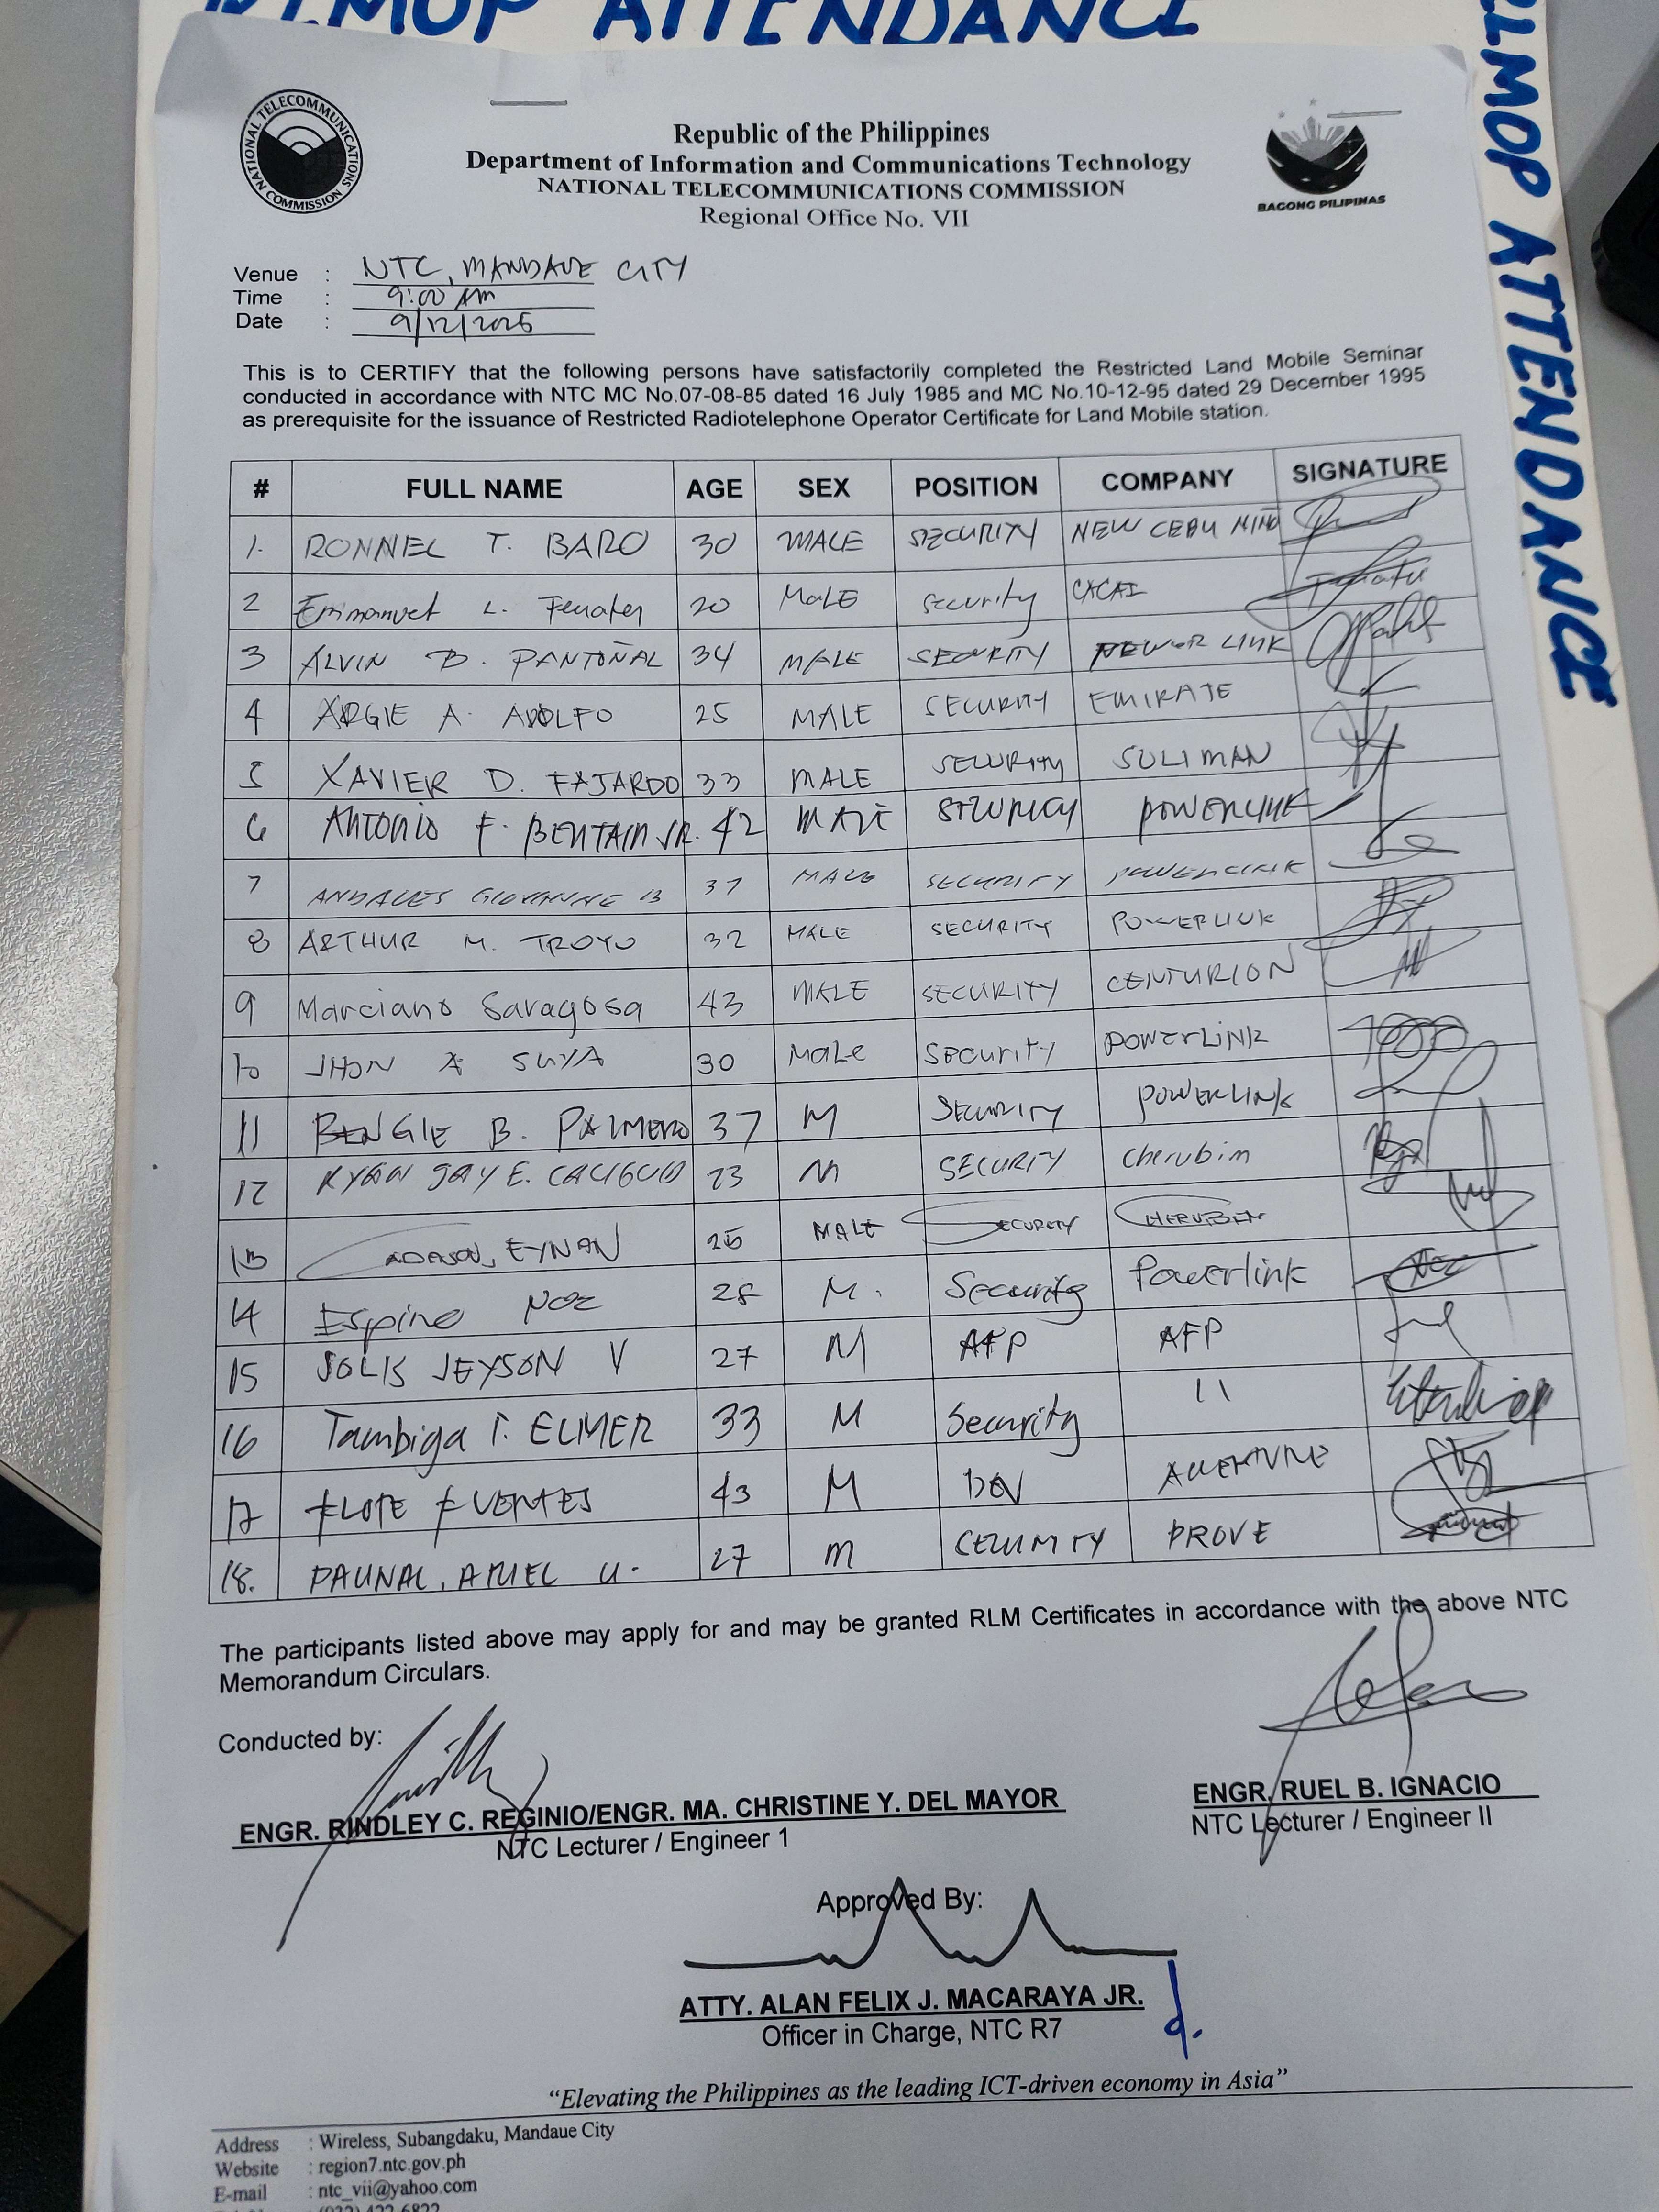 RLMOP ATTENDANCE
RLMOP ATTENDANCE
NATIONAL TELECOMMUNICATIONS COMMISSION
Republic of the Philippines
Department of Information and Communications Technology
NATIONAL TELECOMMUNICATIONS COMMISSION
Regional Office No. VII
BAGONG PILIPINAS
Venue : NTC, MANDAUE CITY
Time : 9:00 AM
Date : 9/12/2025
This is to CERTIFY that the following persons have satisfactorily completed the Restricted Land Mobile Seminar
conducted in accordance with NTC MC No.07-08-85 dated 16 July 1985 and MC No.10-12-95 dated 29 December 1995
as prerequisite for the issuance of Restricted Radiotelephone Operator Certificate for Land Mobile station.
# FULL NAME AGE SEX POSITION COMPANY SIGNATURE
1. RONNEL T. BARO 30 MALE SECURITY NEW CEBU
2 Emmanuel L. 20 MALE Security CACAI
3 ALVIN B. PANTOÑAL 34 MALE SECURITY LINK
4 ARGIE A. ADOLFO 25 MALE SECURITY EMIRATE
5 XAVIER D. FAJARDO 33 MALE SECURITY SULIMAN
6 ANTONIO F. BENTAIN JR. 42 MALE SECURITY POWERLINK
7 ANDALES B 37 MALE SECURITY POWERLINK
8 ARTHUR M. TROYO 32 MALE SECURITY POWERLINK
9 Marciano Saragosa 43 MALE SECURITY CENTURION
10 JHON A SUYA 30 Male Security POWERLINK
11 BENGIE B. PALMERO 37 M SECURITY POWERLINK
12 RYAN JAY E. 23 M SECURITY Cherubim
13 EYNAN MALE SECURITY CHERUBIM
14 Espino Noe 28 M. Security Powerlink
15 SOLIS JEYSON V 27 M AFP AFP
16 Tambiga T. ELMER 33 M Security 11
17 FLOTE FUENTES 43 M
18. PAUNAL, ARIEL U. 27 M CEZUMITY PROVE
The participants listed above may apply for and may be granted RLM Certificates in accordance with the above NTC
Memorandum Circulars.
Conducted by:
ENGR. RINDLEY C. REGINIO/ENGR. MA. CHRISTINE Y. DEL MAYOR
NTC Lecturer / Engineer 1
ENGR. RUEL B. IGNACIO
NTC Lecturer / Engineer II
Approved By:
ATTY. ALAN FELIX J. MACARAYA JR.
Officer in Charge, NTC R7
“Elevating the Philippines as the leading ICT-driven economy in Asia”
Address : Wireless, Subangdaku, Mandaue City
Website : region7.ntc.gov.ph
E-mail : ntc_vii@yahoo.com
: (032) 422-6822